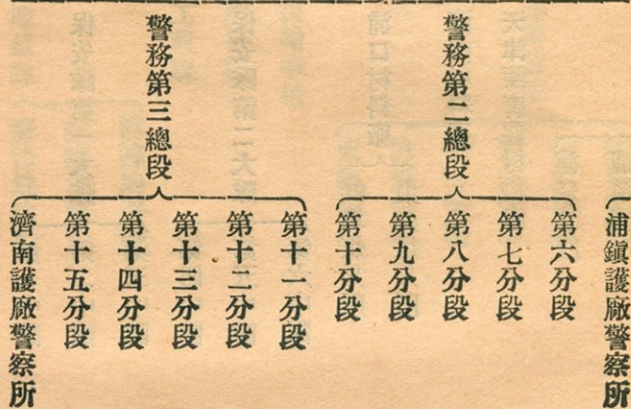 浦鎮護廠警察所
警務第二總段
第六分段
第七分段
第八分段
第九分段
第十分段
警務第三總段
第十一分段
第十二分段
第十三分段
第十四分段
第十五分段
濟南護廠警察所